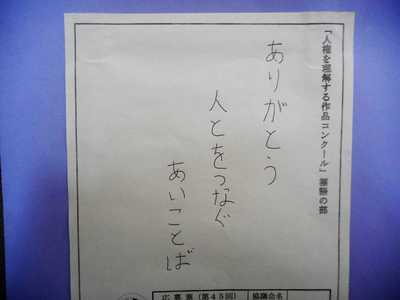 『人権を理解する作品コンクール』標語の部
ありがとう
人とをつなぐ
あいことば
応募票(第45回)
協議会名